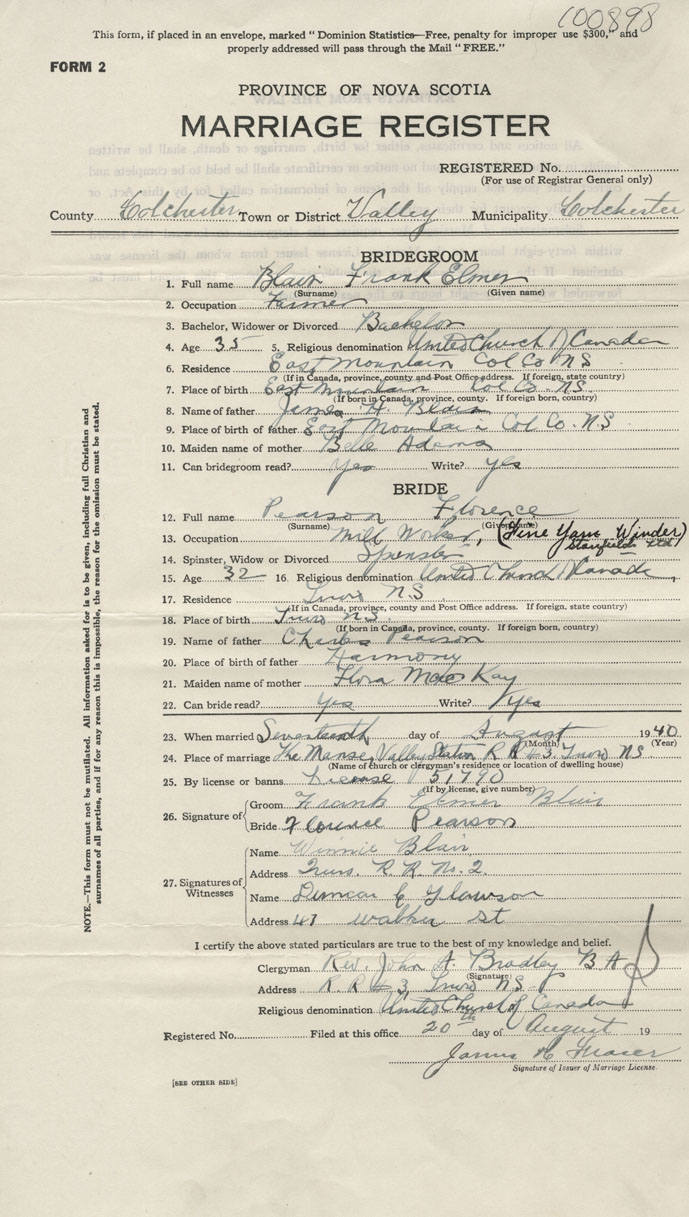 100898
This form, if placed in an envelope, marked "Dominion Statistics—Free, penalty for improper use $300," and
properly addressed will pass through the Mail "FREE."
FORM 2
PROVINCE OF NOVA SCOTIA
MARRIAGE REGISTER
REGISTERED No.
(For use of Registrar General only)
County Colchester Town or District Valley Municipality Colchester
BRIDEGROOM
1. Full name Blair Frank Elmer
(Surname) (Given name)
2. Occupation Farmer
3. Bachelor, Widower or Divorced Bachelor
4. Age 35 5. Religious denomination United Church of Canada
6. Residence East Mountain Col Co NS
(If in Canada, province, county and Post Office address. If foreign, state country)
7. Place of birth East Mountain Col Co. NS.
(If born in Canada, province, county. If foreign born, country)
8. Name of father James H. Blair
9. Place of birth of father East Mountain Col Co. NS
10. Maiden name of mother Belle Adams
11. Can bridegroom read? Yes Write? yes
BRIDE
12. Full name Pearson Florence
(Surname) (Given name)
13. Occupation Mill Worker, (Fine Yarn Winder)
Stanfields Ltd
14. Spinster, Widow or Divorced Spinster
15. Age 32 16. Religious denomination United Church Canada
17. Residence Truro NS
(If in Canada, province, county and Post Office address. If foreign, state country)
18. Place of birth Truro NS.
(If born in Canada, province, county. If foreign born, country)
19. Name of father Charles Pearson
20. Place of birth of father Harmony
21. Maiden name of mother Flora MacKay
22. Can bride read? Yes Write? Yes
23. When married Seventeenth day of August 1940
(Month) (Year)
24. Place of marriage The Manse, Valley Station R R #3, Truro NS
(Name of church or clergyman's residence or location of dwelling house)
25. By license or banns License 51790
(If by license, give number)
26. Signature of Groom Frank Elmer Blair
Bride Florence Pearson
27. Signatures of Witnesses
Name Winnie Blair
Address Truro. R.R. No. 2
Name Duncan C
Address 47 Walker St
I certify the above stated particulars are true to the best of my knowledge and belief.
Clergyman Rev. John A. Bradley B A
(Signature)
Address R. R #3, Truro NS
Religious denomination United Church of Canada
Registered No. Filed at this office 20th day of August 19
James H Fraser
Signature of Issuer of Marriage License.
[SEE OTHER SIDE]
NOTE.—This form must not be mutilated. All information asked for is to be given, including full Christian and
surnames of all parties, and if for any reason this is impossible, the reason for the omission must be stated.